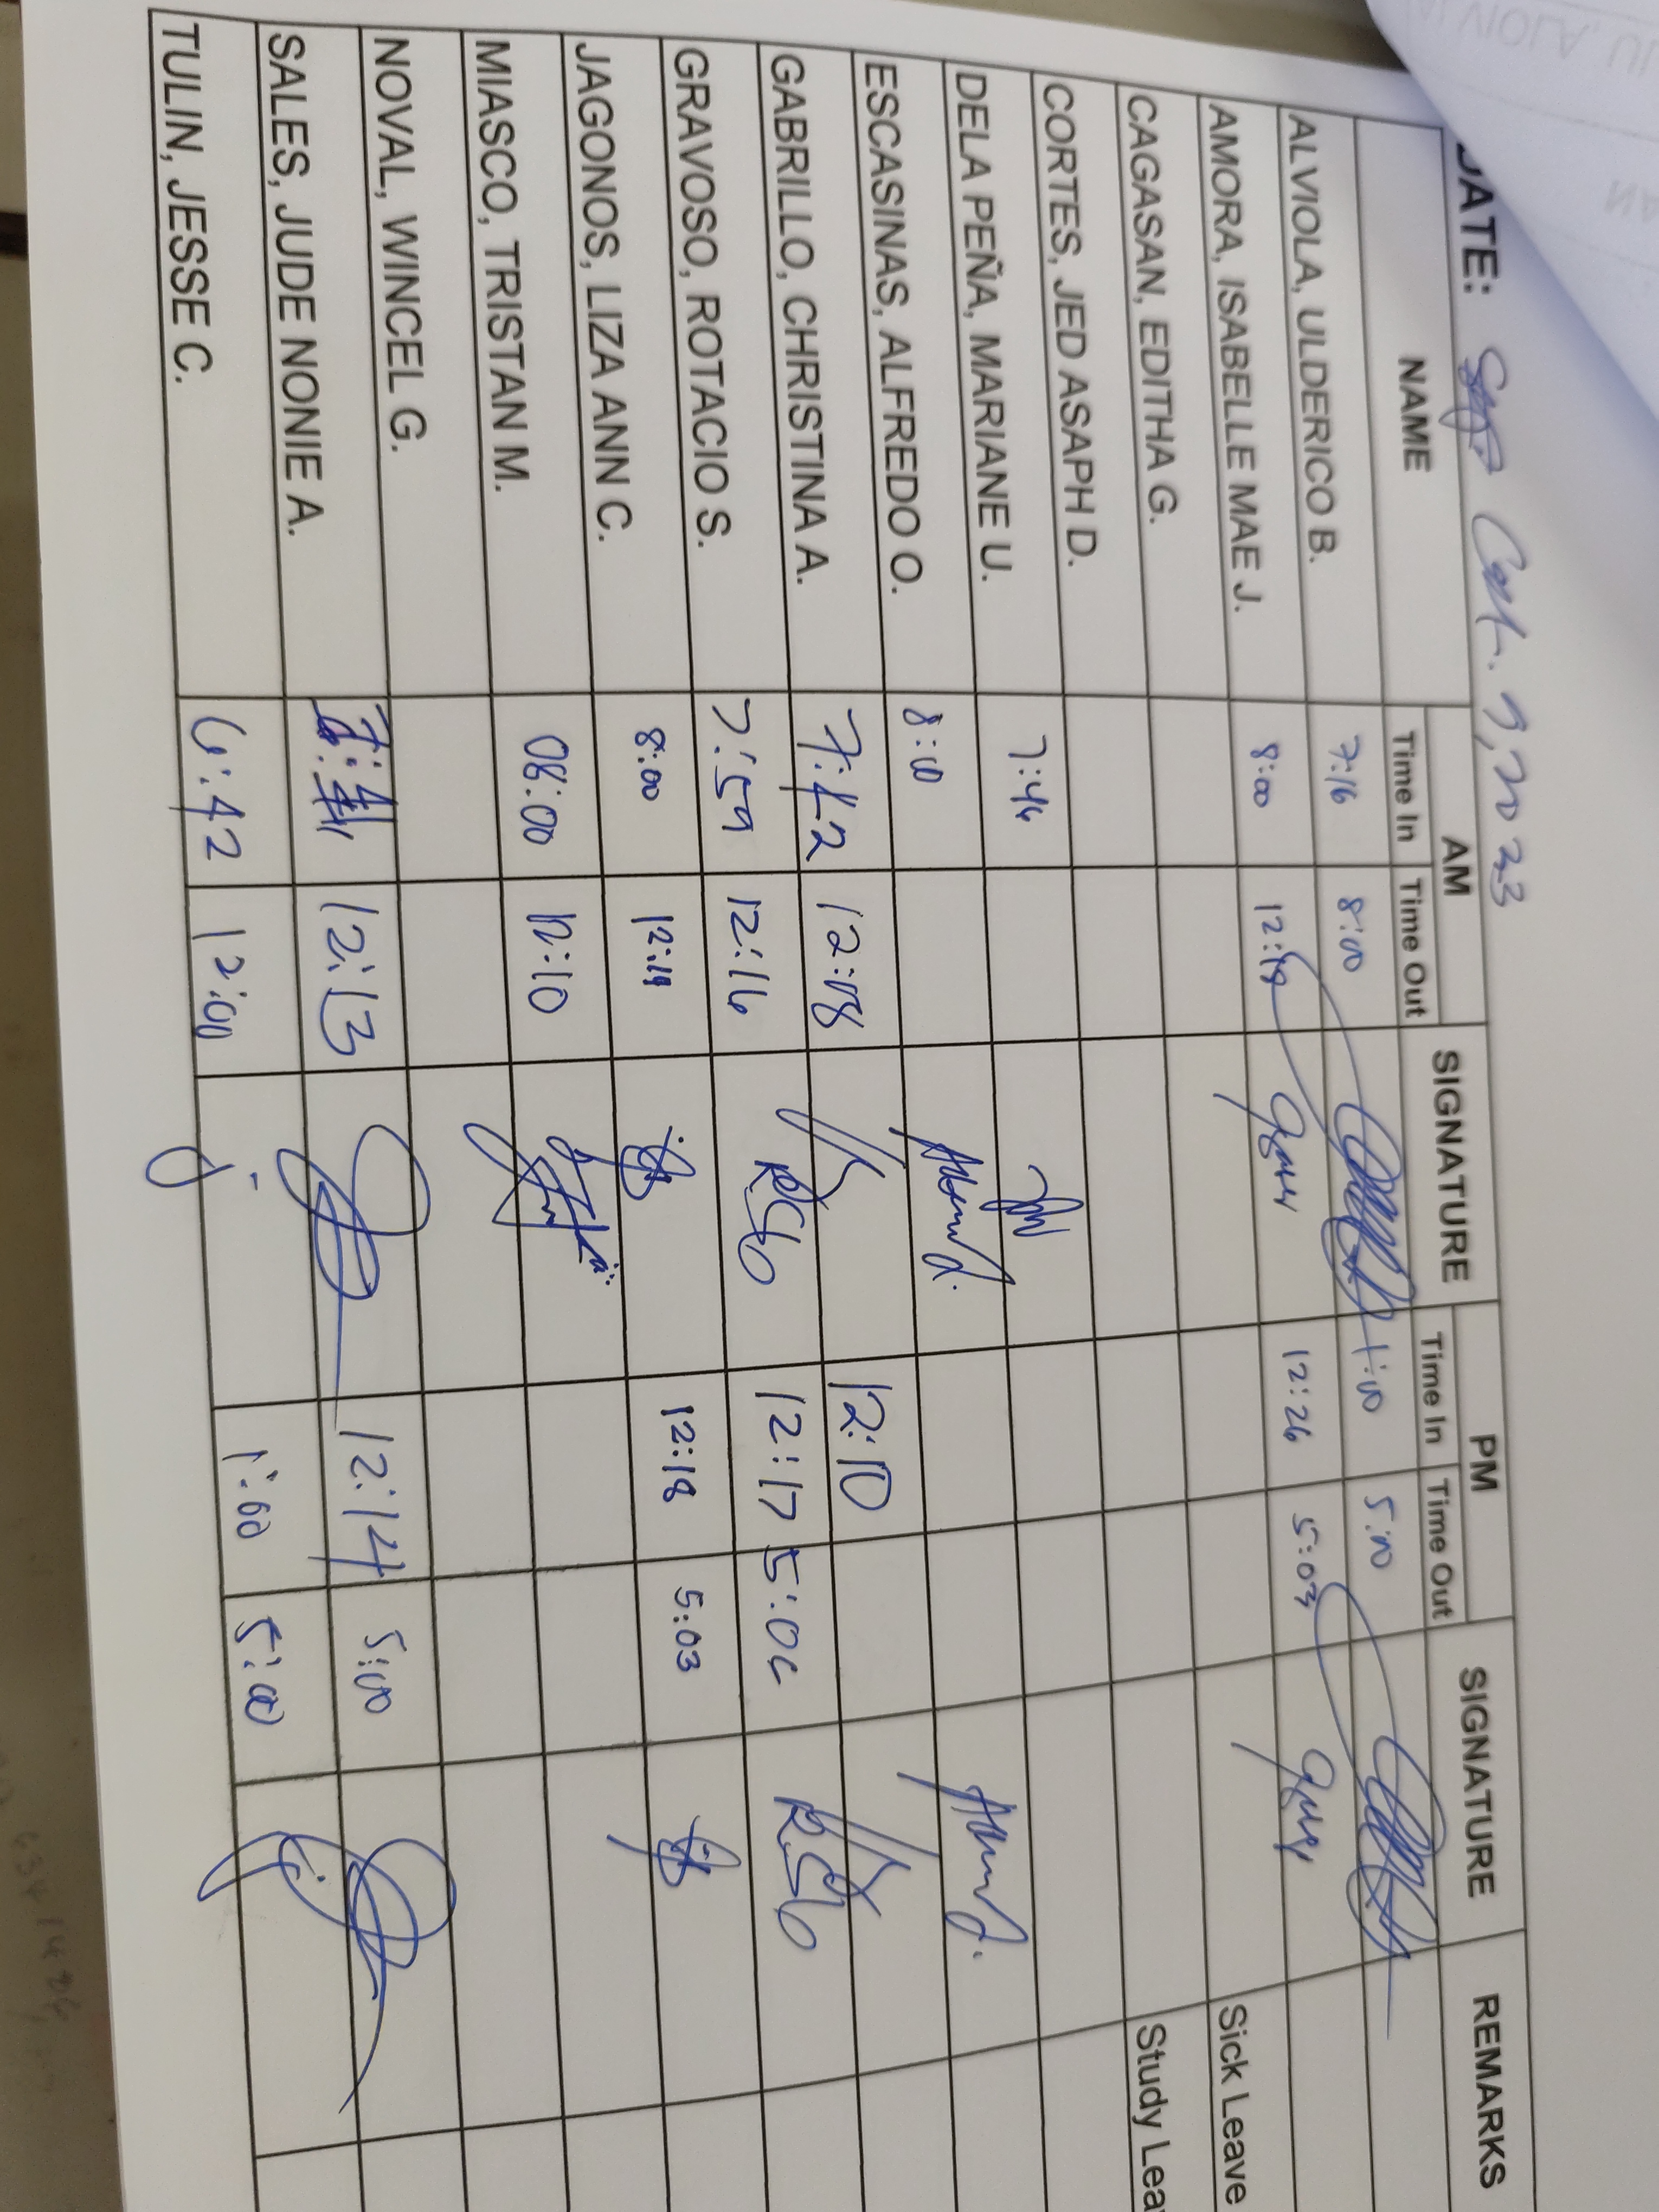 DATE: Oct. 9, 2023
NAME AM SIGNATURE PM SIGNATURE REMARKS
Time In Time Out Time In Time Out
ALVIOLA, ULDERICO B. 7:16 8:00 1:00 5:00
AMORA, ISABELLE MAE J. 8:00 12:19 12:26 5:03
CAGASAN, EDITHA G. Sick Leave
CORTES, JED ASAPH D. Study Lea
DELA PEÑA, MARIANE U. 7:46
ESCASINAS, ALFREDO O. 8:10
GABRILLO, CHRISTINA A. 7:42 12:08 12:10
GRAVOSO, ROTACIO S. 7:59 12:16 12:17 5:06
JAGONOS, LIZA ANN C. 8:00 12:19 12:18 5:03
MIASCO, TRISTAN M. 08:00 12:10
NOVAL, WINCEL G.
SALES, JUDE NONIE A. 12:13 12:14 5:00
TULIN, JESSE C. 6:42 12:00 1:00 5:00